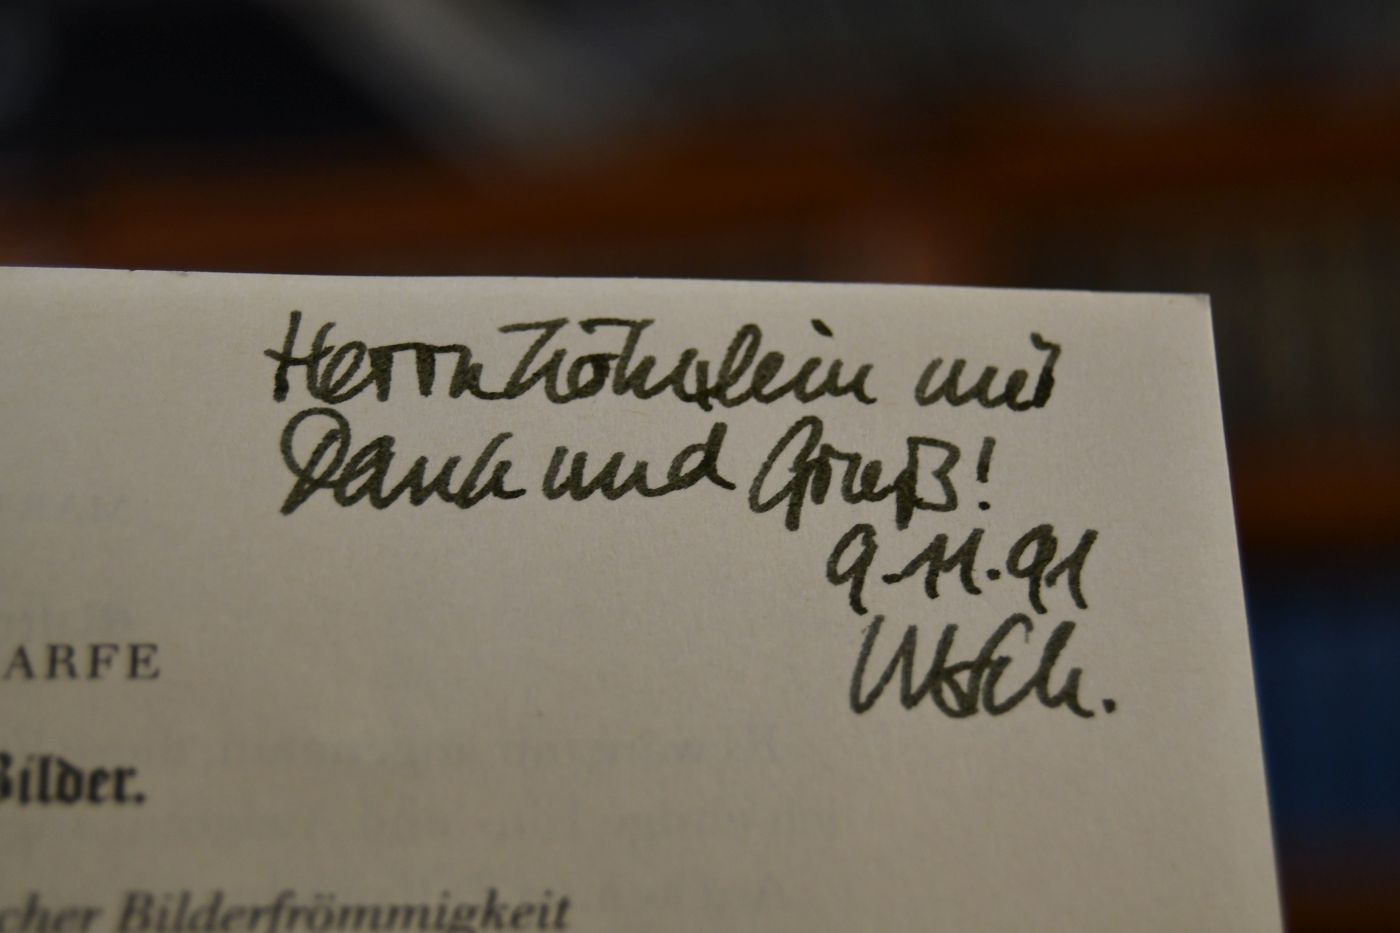 Herrn Köhnlein mit
Dank und Gruß!
9.11.91
ARFE
Bilder.
cher Bilderfrömmigkeit